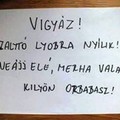 VIGYÁZ!
ZAJTÓ LYOBRA NYÍLIK!
NE ÁJJ ELÉ, MERHA VALA
KILYÖN ORBABASZ!